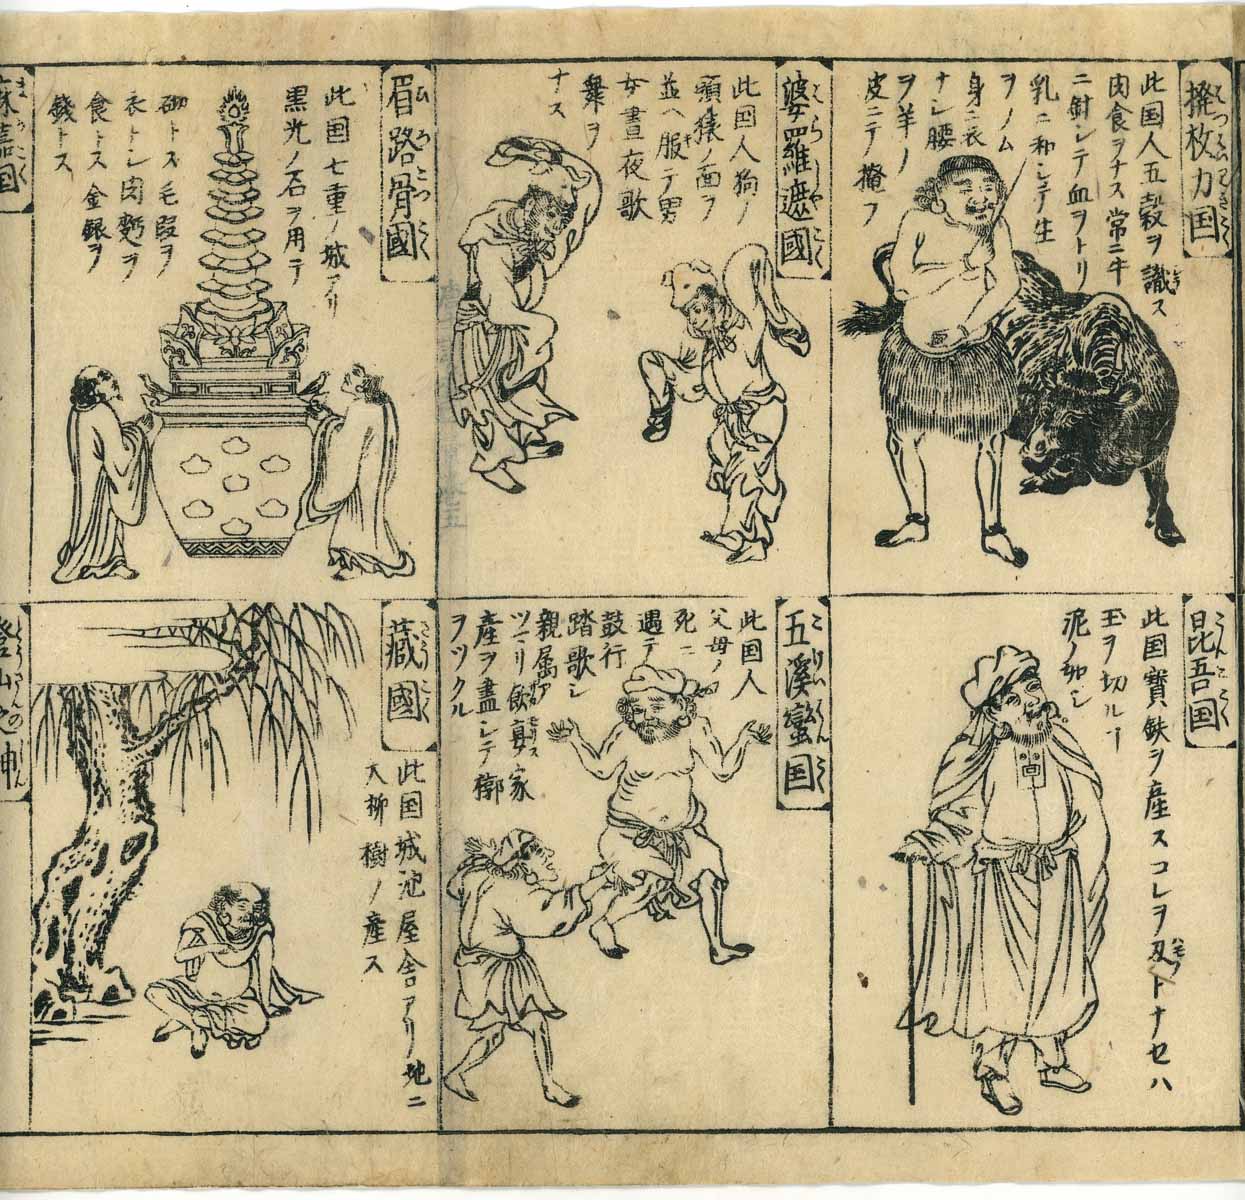 撥枚力国
此国人五穀ヲ識ス
肉食ヲナス常ニ牛
ニ針シテ血ヲトリ
乳ニ和シテ生
ヲノム
身ニ衣
ナシ腰
ヲ羊ノ
皮ニテ掩フ
婆羅遮國
此国人狗ノ
頭猿ノ面ヲ
並ヘ服テ男
女晝夜歌
舞ヲ
ナス
眉路骨國
此国七重ノ城アリ
黒光ノ石ヲ用テ
砌トス毛段ヲ
衣トシ肉麪ヲ
食トス金銀ヲ
錢トス
昆吾国
こんごこく
此国寶鉄ヲ産スコレヲ刄トナセハ
玉ヲ切ルヿ
泥ノ如シ
五溪蠻国
此国人
父母ノ
死ニ
遇テ
鼓行
踏歌シ
親属ア
ツマリ飲宴家
産ヲ盡シテ槨
ヲツクル
藏國
ざうこく
此国城池屋舎アリ地ニ
大柳樹ノ産ス
登山之神